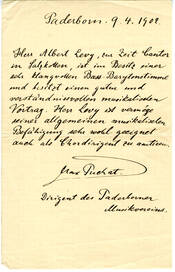 Paderborn. 9.4.1908
Herr Albert Levy, zur Zeit Cantor
in Salzkotten, ist im Besitz einer
sehr klangvollen Bass-Barytonstimme
und leistet einen guten und
verständnisvollen musikalischen
Vortrag. Herr Levy ist vermöge
seiner allgemeinen musikalischen
Befähigung sehr wohl geeignet
auch als Chordirigent zu amtieren.
Max Puchat
Dirigent des Paderborner
Musikvereins.